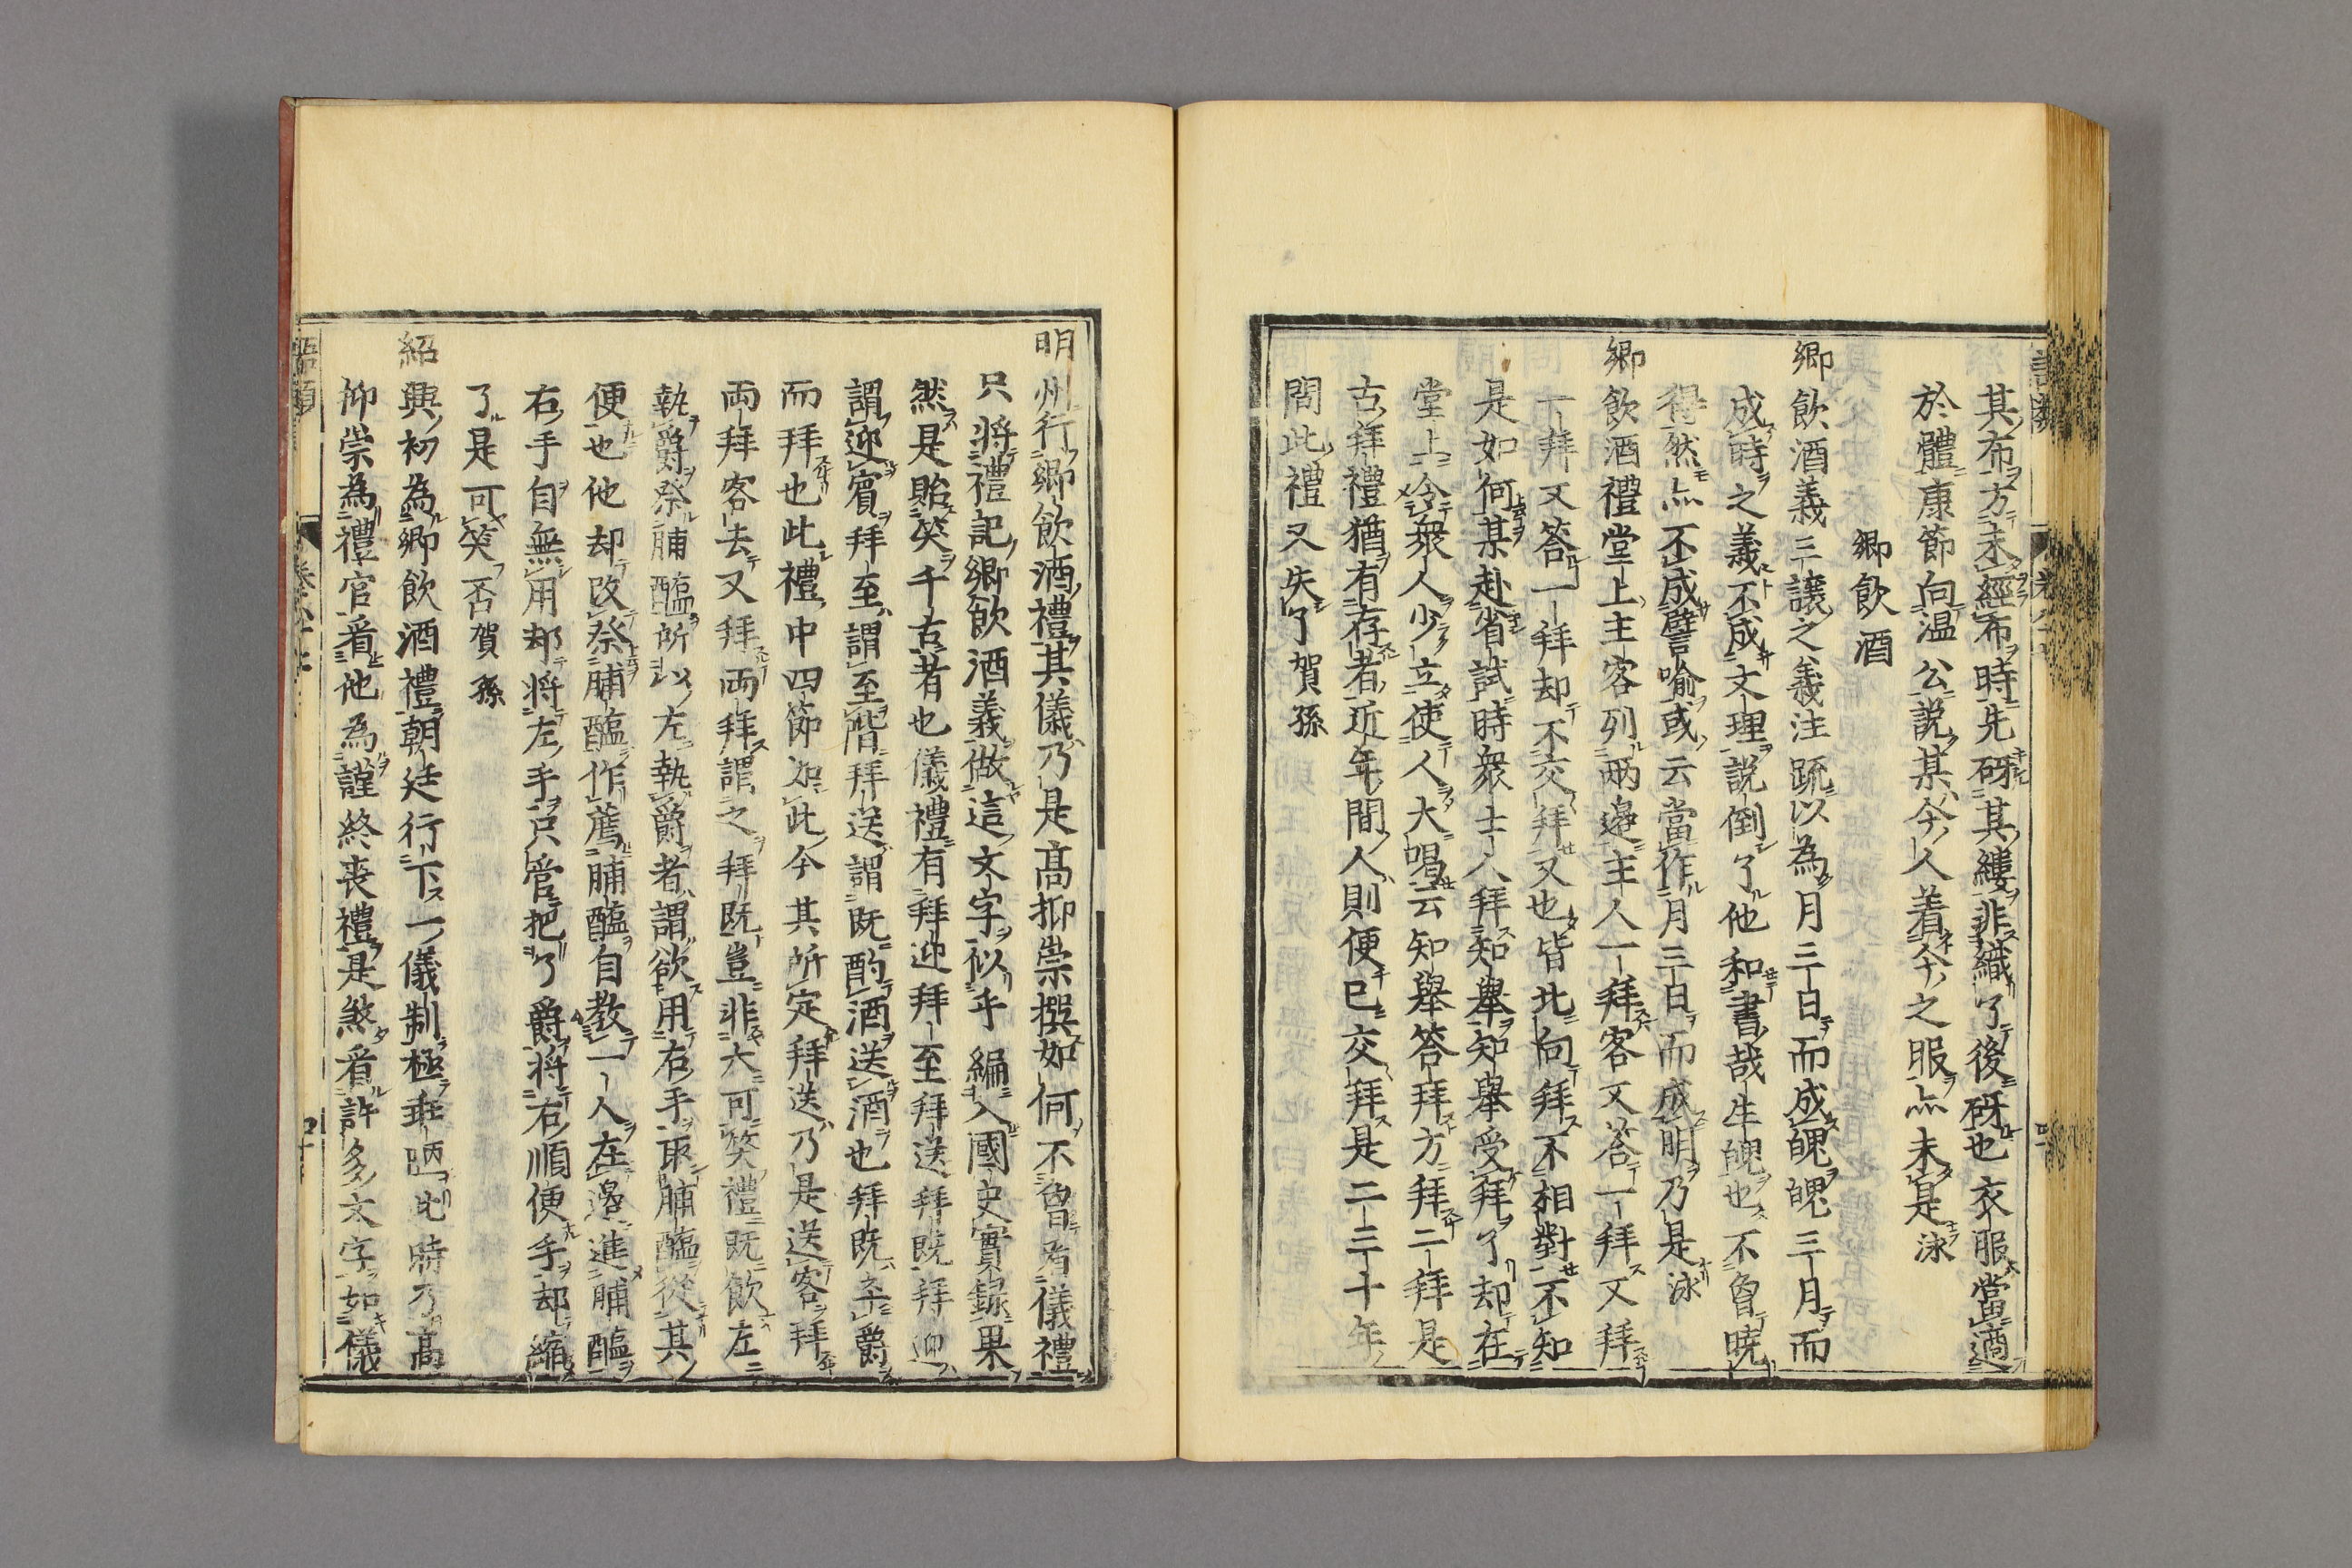 其布方未經布時先砑其縷非織了後砑也衣服當適
於體康節向温公說某今人着今之服亦未是泳
鄉飲酒
鄉飲酒義三讓之義注疏以為月三日而成魄魄三月而
成時之義不成文理說倒了他和書哉生魄也不曾曉
得然亦不成譬喻或云當作月三日而成明乃是泳
鄉飲酒禮堂上主客列兩邉主人一拜客又荅一拜又拜
一拜又荅一拜却不交拜又也皆北向拜不相對不知
是如何某赴省試時衆士人拜知舉知舉受拜了却在
堂上令衆人少立使人大喝云知舉答拜方拜二拜是
古拜禮猶有存者近年間人則便已交拜是二三十年
間此禮又失了賀孫
明州行鄉飲酒禮其儀乃是高抑崇撰如何不曾看儀禮
只將禮記鄉飲酒義做這文字似乎編入國史實錄果
然是貽笑千古者也儀禮有拜迎拜至拜送拜既拜迎
謂迎賓拜至謂至階拜送謂既酌酒送酒也拜既卒爵
而拜也此禮中四節如此今其所定拜送乃是送客拜
両拜客去又拜両拜謂之拜既豈非大可笑禮既飲左
執爵祭脯醢所以左執爵者謂欲用右手取脯醢從其
便也他却改祭脯醢作薦脯醢自教一人在邉進脯醢
右手自無用却將左手只管把了爵將右順便手却縮
了是可笑否賀孫
紹興初為鄉飲酒禮朝廷行下一儀制極乖陋此時乃高
抑崇為禮官看他為謹終喪禮是煞看許多文字如儀